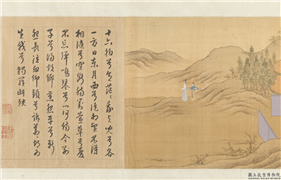 十六拍兮思茫茫我與兒兮各
一方日東月西兮徒相望不得
相隨兮空斷腸對萱草兮憂
不忘彈鳴琴兮情何傷今別
子兮歸故鄉舊怨平兮新
怨長泣血仰頭兮訴蒼蒼胡為
生我兮獨罹此殃